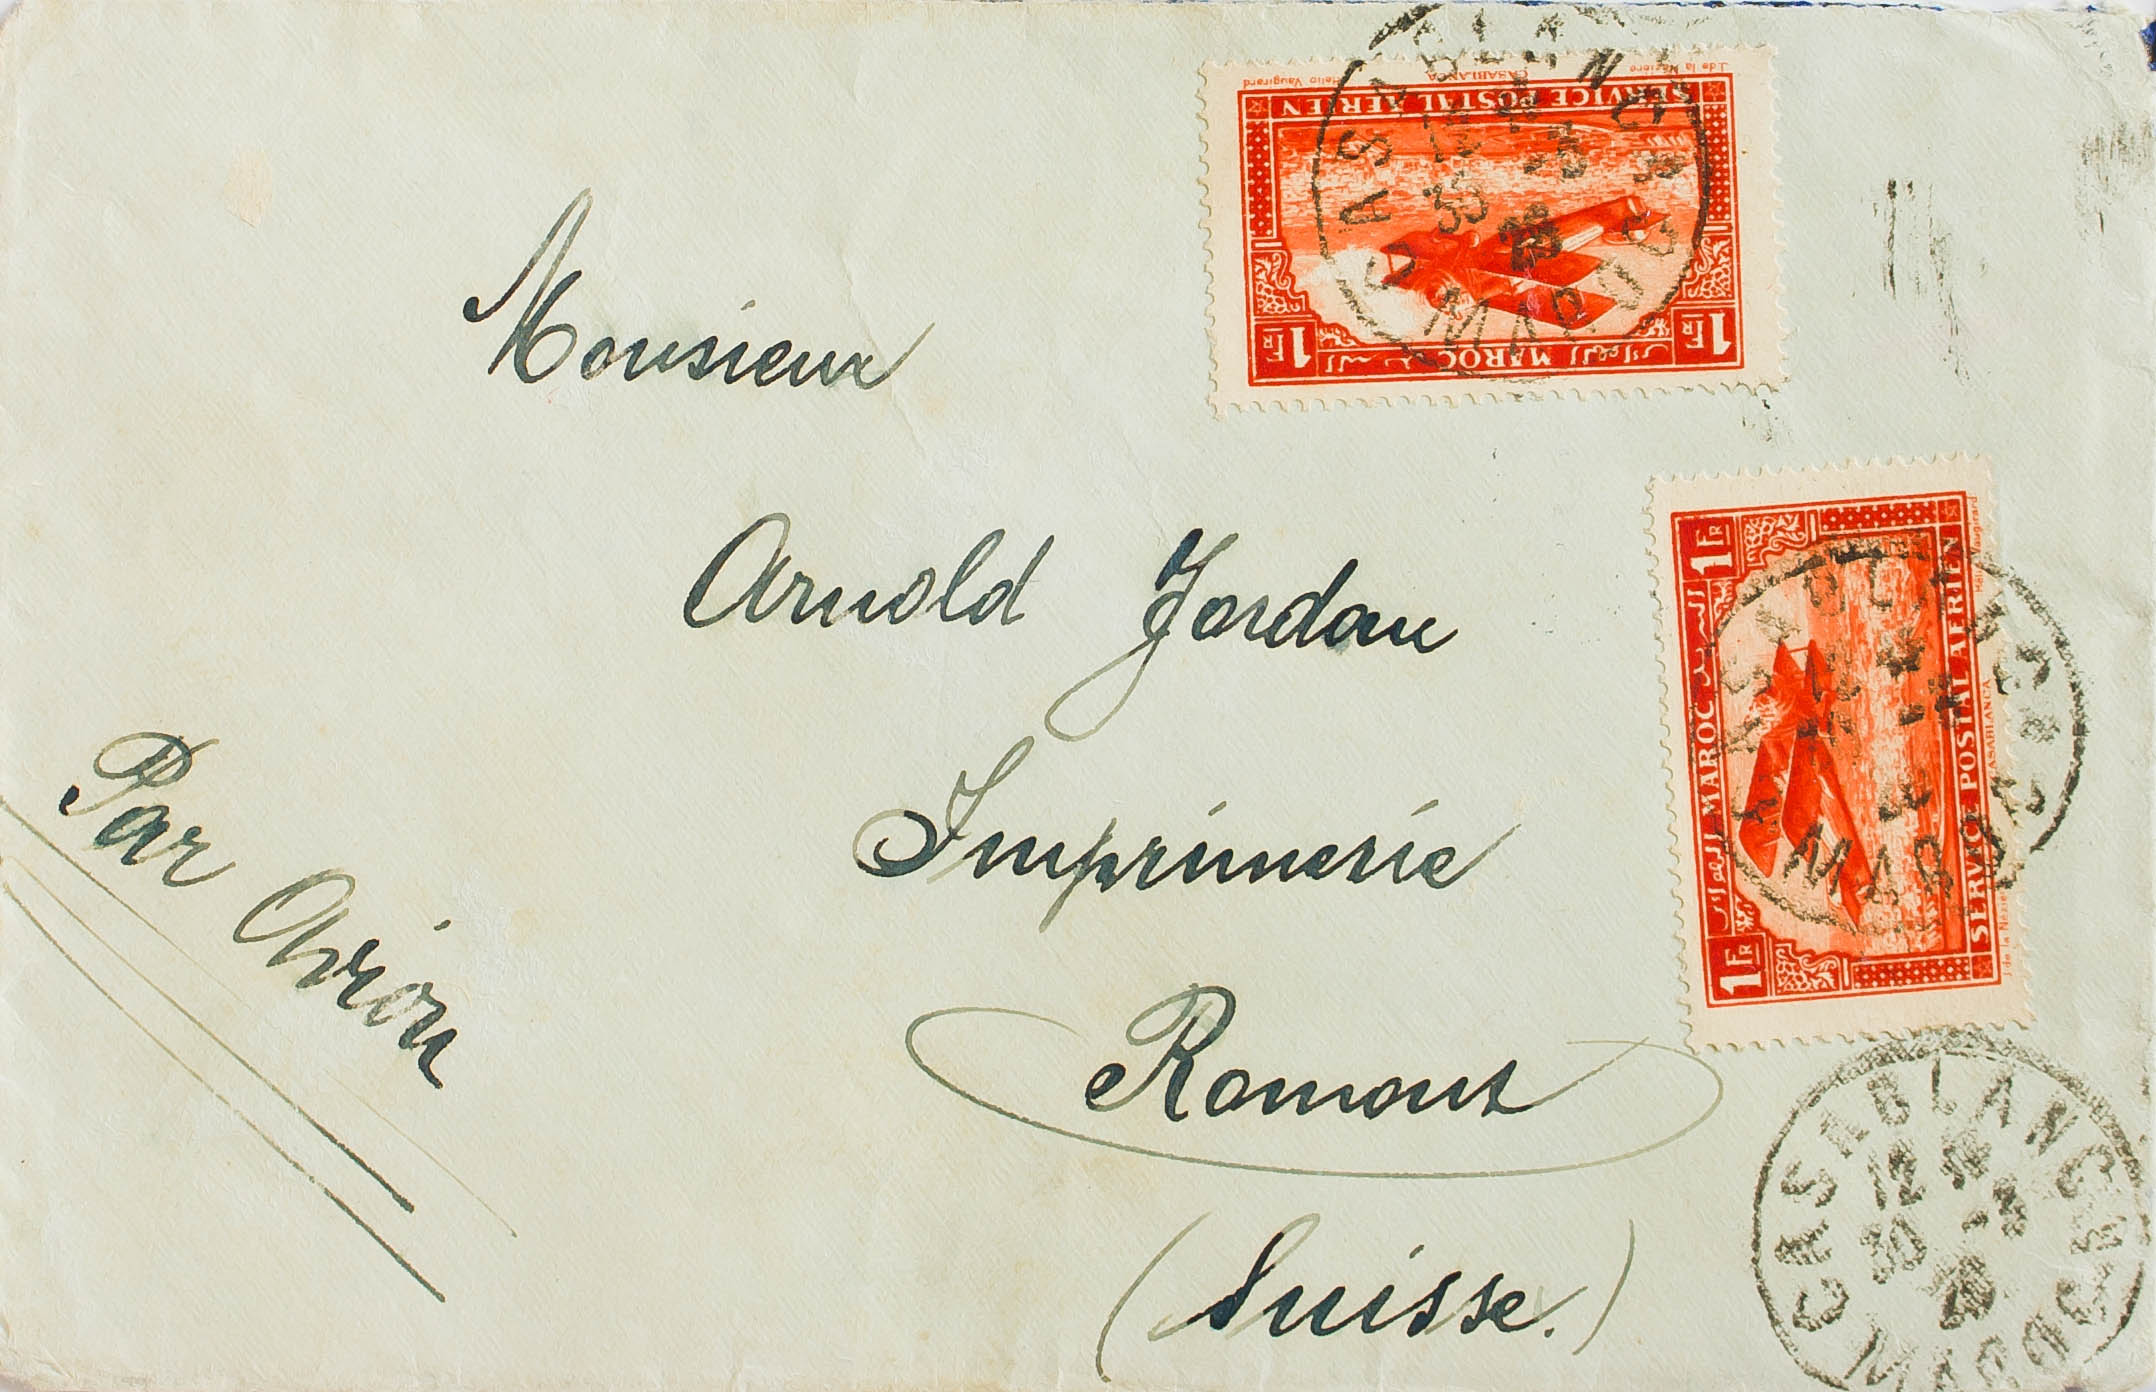 Monsieur
Arnold Jordan
Imprimerie
Romont
(Suisse.)
Par Avion
J. de la Nézière CASABLANCA Hélio Vaugirard
SERVICE POSTAL AERIEN
1 FR MAROC 1 FR
CASABLANCA
12
MAROC
1 FR MAROC 1 FR
SERVICE POSTAL AERIEN
J. de la Nézière CASABLANCA Hélio Vaugirard
CASABLANCA
12
MAROC
CASABLANCA
12
30
MAROC